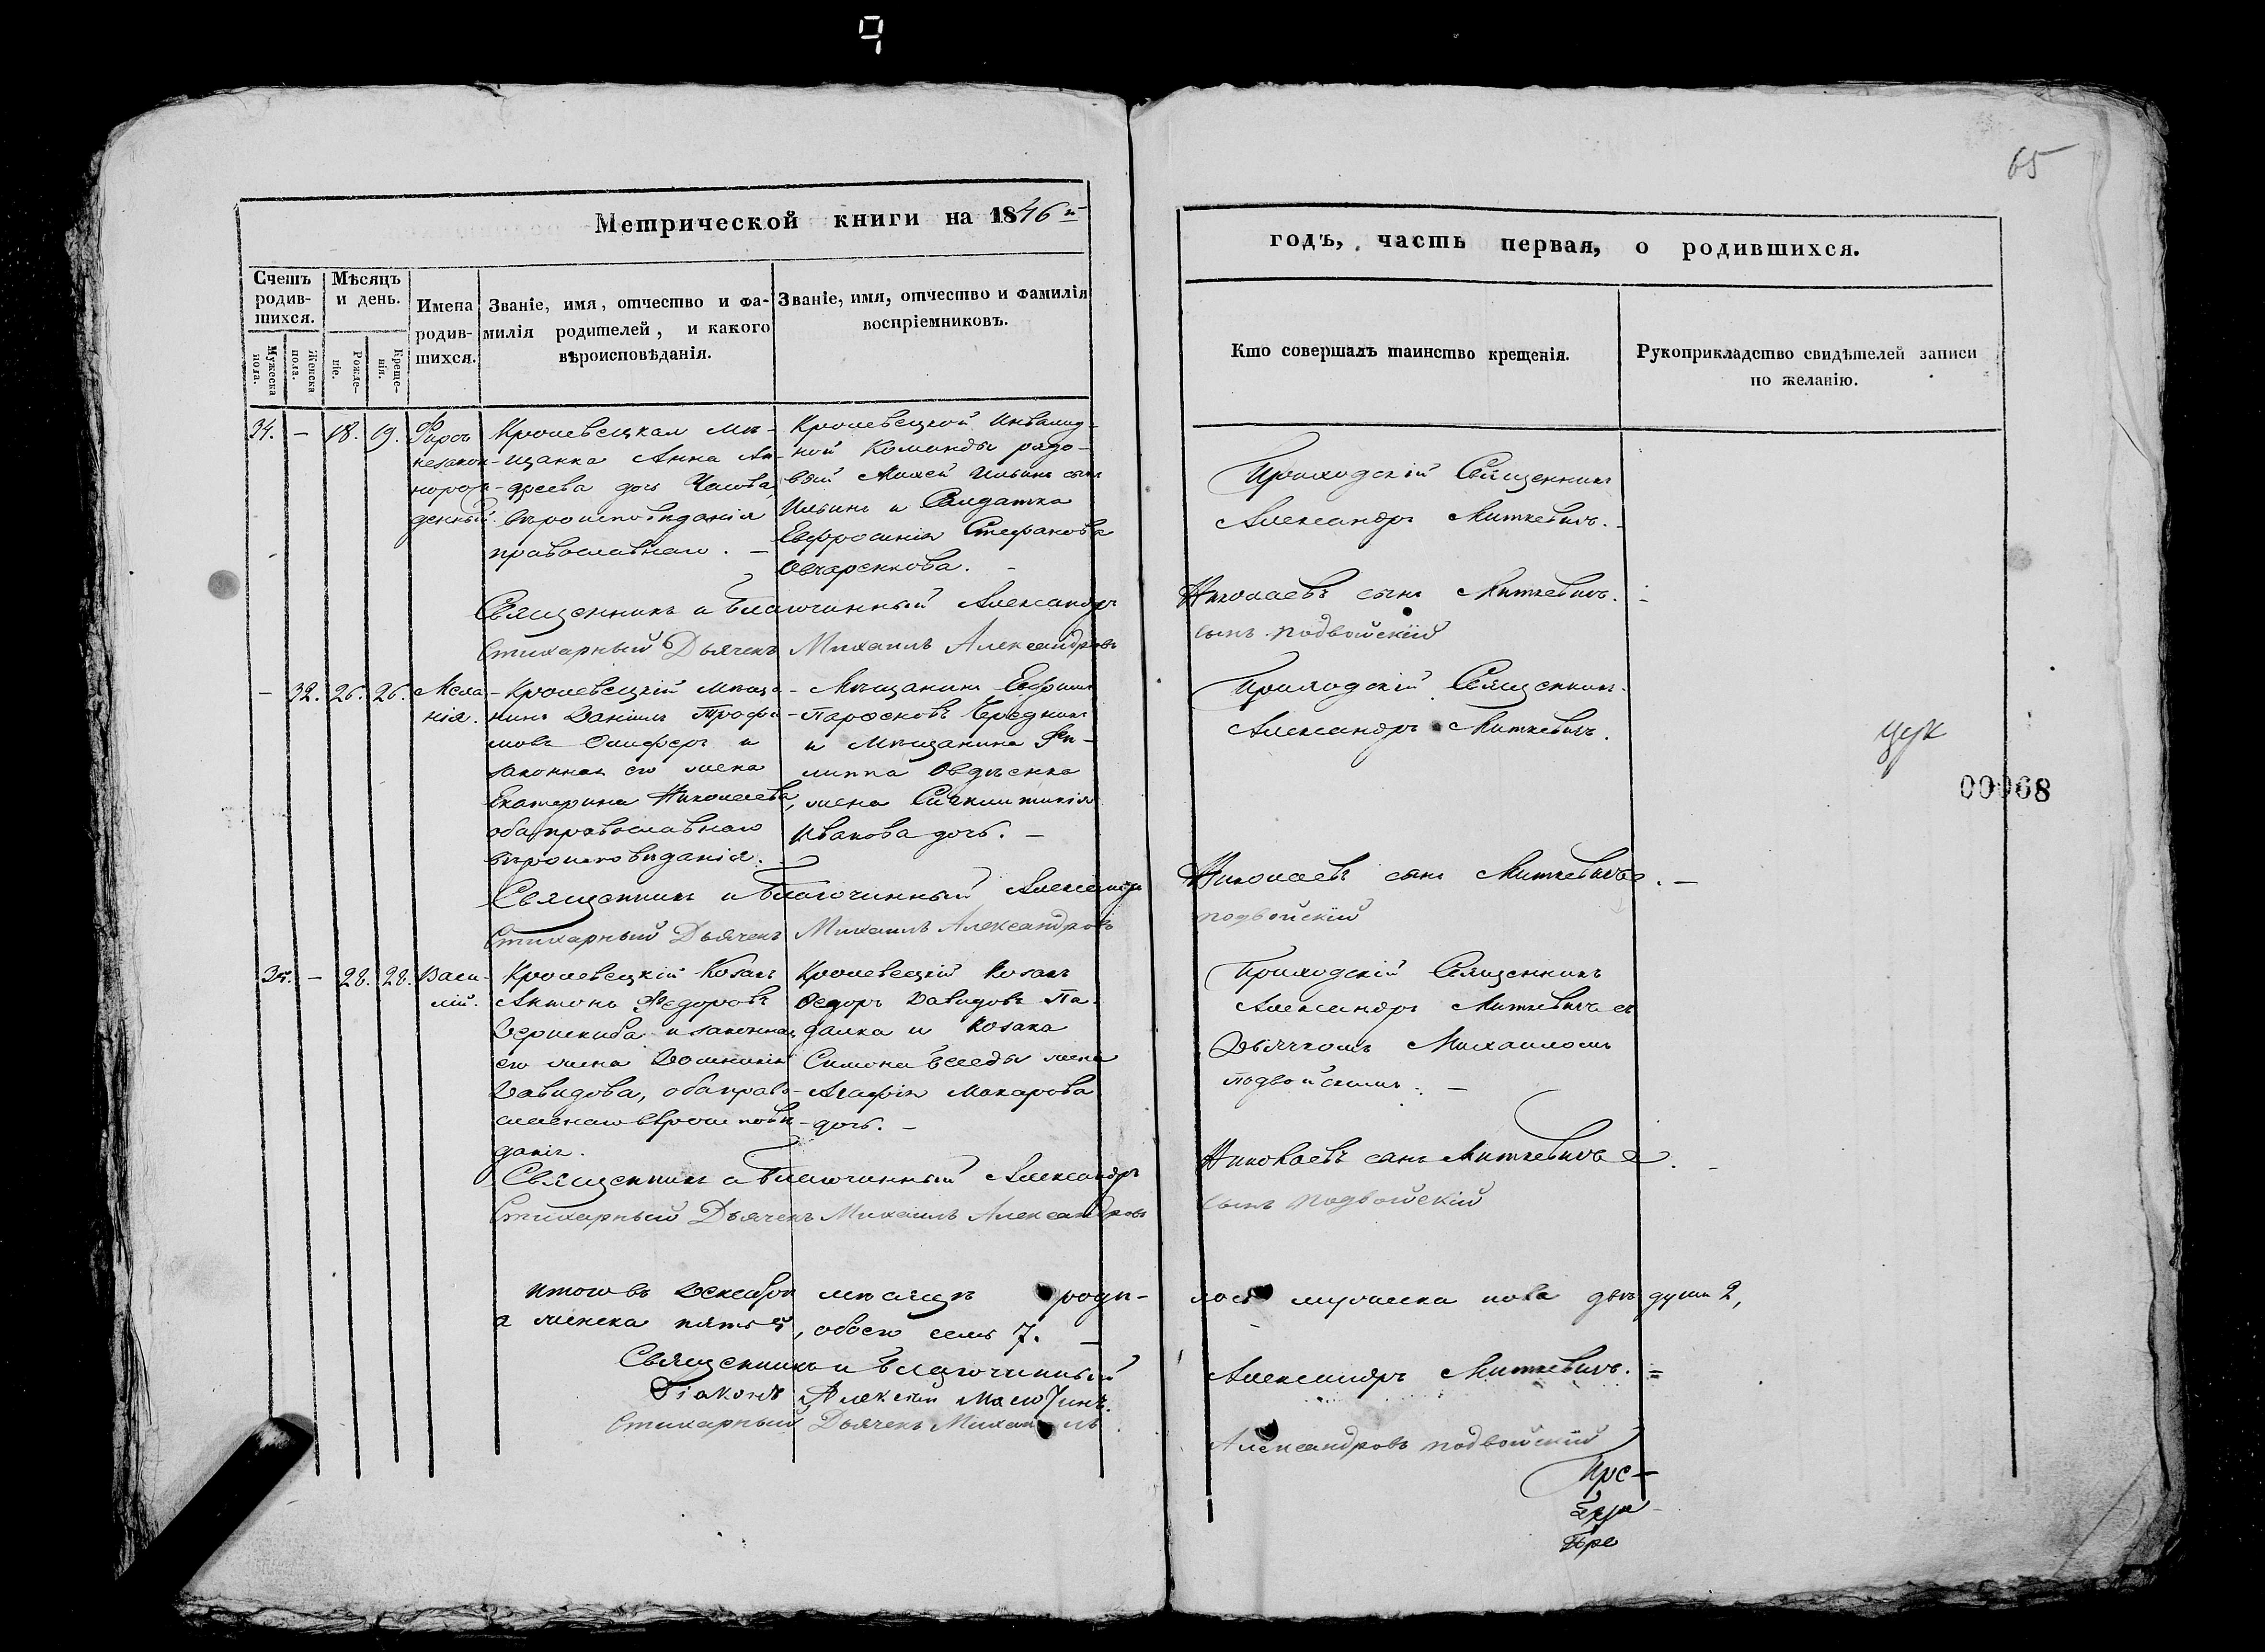 65
Метрической книги на 1846й
годъ, часть первая, о родившихся.
Счетъ родив-шихся.
Мѣсяцъ и день.
Мужеска пола.
Женска пола.
Рожде-ніе.
Креще-нія.
Имена родив-шихся.
Званіе, имя, отчество и фа-
милія родителей, и какого
вѣроисповѣданія.
Званіе, имя, отчество и фамилія
воспріемниковъ.
Кто совершалъ таинство крещенія.
Рукоприкладство свидѣтелей записи
по желанію.
34. – 18. 19.
незакон-
норож-
денный.
Кролевецкая мѣ-
щанка Анна Ан-
дреева дочь
вѣроисповѣданія
православнаго. –
Кролевецкой Инвалид-
ной Команды рядо-
вой Мойсей Ильинъ сынъ
Ильинъ и Солдатка
Евфросинія Стефанова
Овчаренкова. –
Приходскій Священникъ
Александръ Миткевичъ. –
Священникъ и Благочинный Александръ Николаевъ сынъ Миткевичъ.
Стихарный Дьячекъ Михаилъ Александровъ сынъ Подвойскій
– 32. 26. 26.
Мела-
нія.
Кролевецкій мѣща-
нинъ Даніилъ Трофи-
мовъ и
законная его жена
Екатерина Николаева,
оба православнаго
вѣроисповѣданія.
Мѣщанинъ Ефримъ
Парѳеновъ Чередникъ
и Мѣщанина Фи-
липпа Овдѣенка
жена Сигклитикія
Иванова дочь. –
Приходскій Священникъ
Александръ Миткевичъ.
00068
Священникъ и Благочинный Александръ Николаевъ сынъ Миткевичъ. –
Стихарный Дьячекъ Михаилъ Александровъ Подвойскій
35. – 28. 28.
Васи-
лій.
Кролевецкій Козакъ
Антонъ Ѳедоровъ
и законная
его жена Домникія
Давидова, оба право-
славнаго вѣроисповѣ-
данія.
Кролевецкій Козакъ
Ѳедоръ Давидовъ Па-
далка и Козака
Симона Беседы жена
Агафія Макарова
дочь. –
Приходскій Священникъ
Александръ Миткевичъ съ
Дьячкомъ Михаиломъ
Подвойскимъ. –
Священникъ и Благочинный Александръ Николаевъ сынъ Миткевичъ.
Стихарный Дьячекъ Михаилъ Александровъ сынъ Подвойскій
Итого въ Декабрѣ мѣсяцѣ роди-лось мужеска пола двѣ души 2,
а женска пять 5, обоего семь 7. –
Священникъ и Благочинный Александръ Миткевичъ. =
Діаконъ Алексѣй
Стихарный Дьячекъ Михаилъ Александровъ Подвойскій